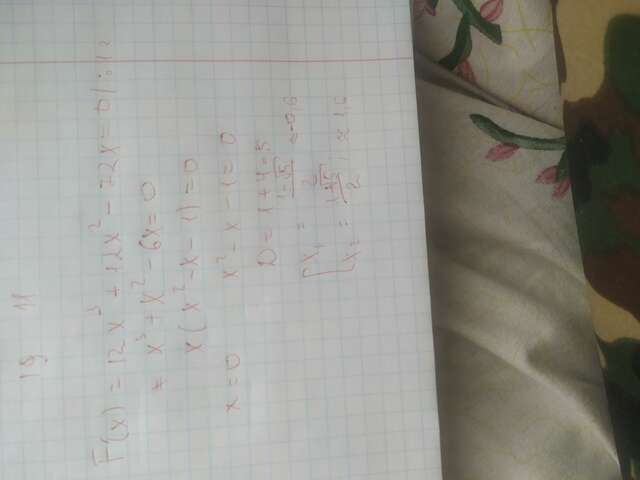 19 11
F(x) = 12x³ + 12x² - 72x = 0 / : 12
x³ + x² - 6x = 0
x(x² - x - 1) = 0
x = 0 x² - x - 1 = 0
D = 1 + 4 = 5
[ x₁ = (1-√5)/2 ≈ -0,6
x₂ = (1+√5)/2 ≈ 1,6